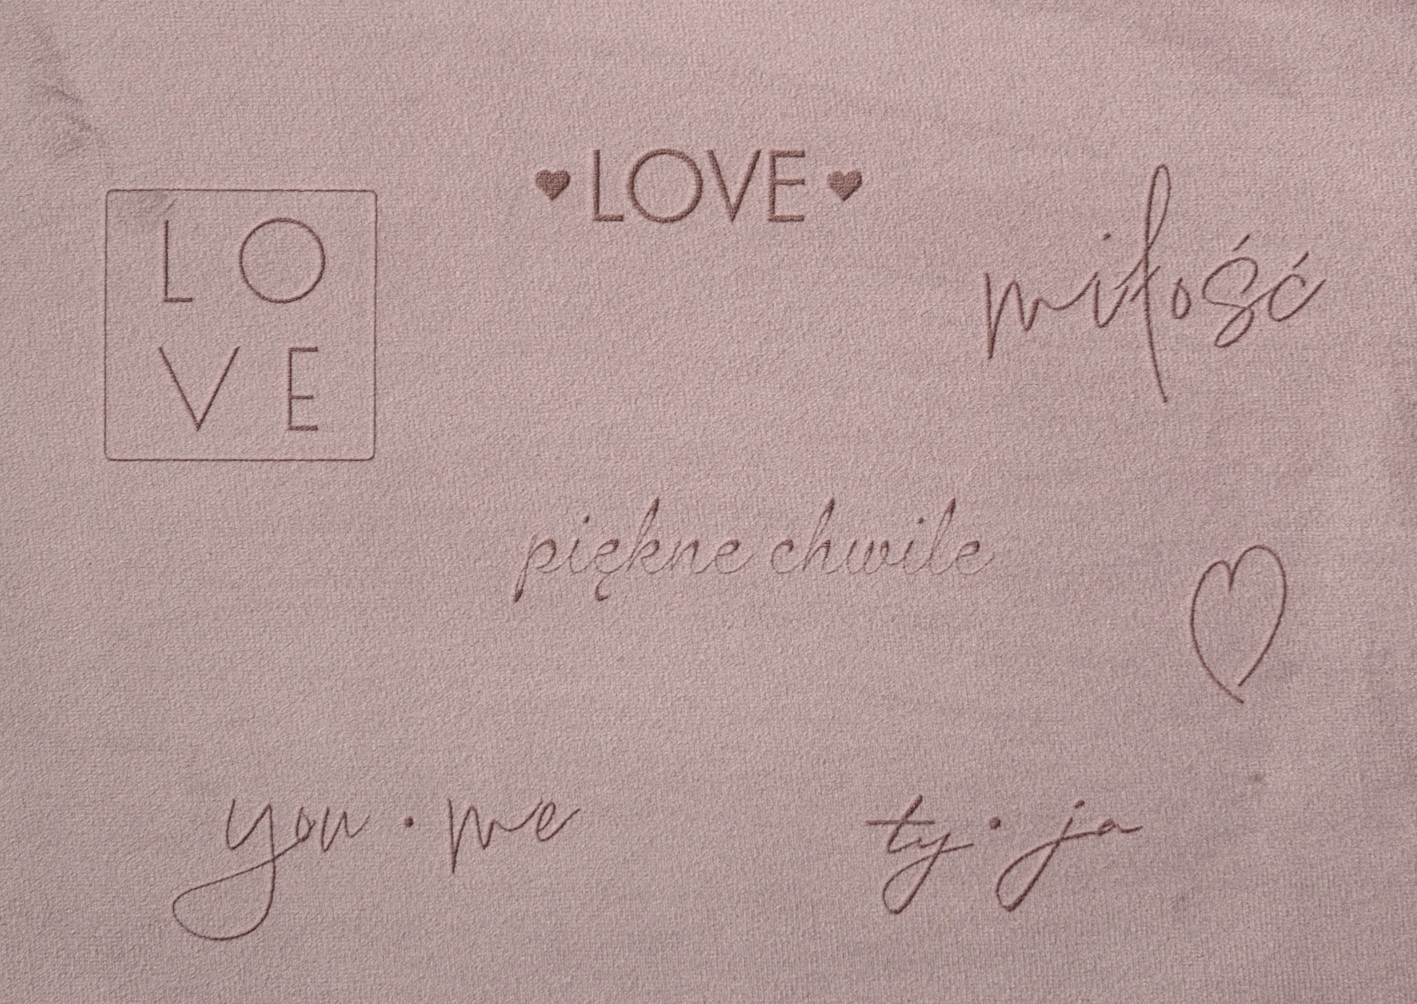 LOVE
LO
VE
miłość
piękne chwile
you • me
ty • ja